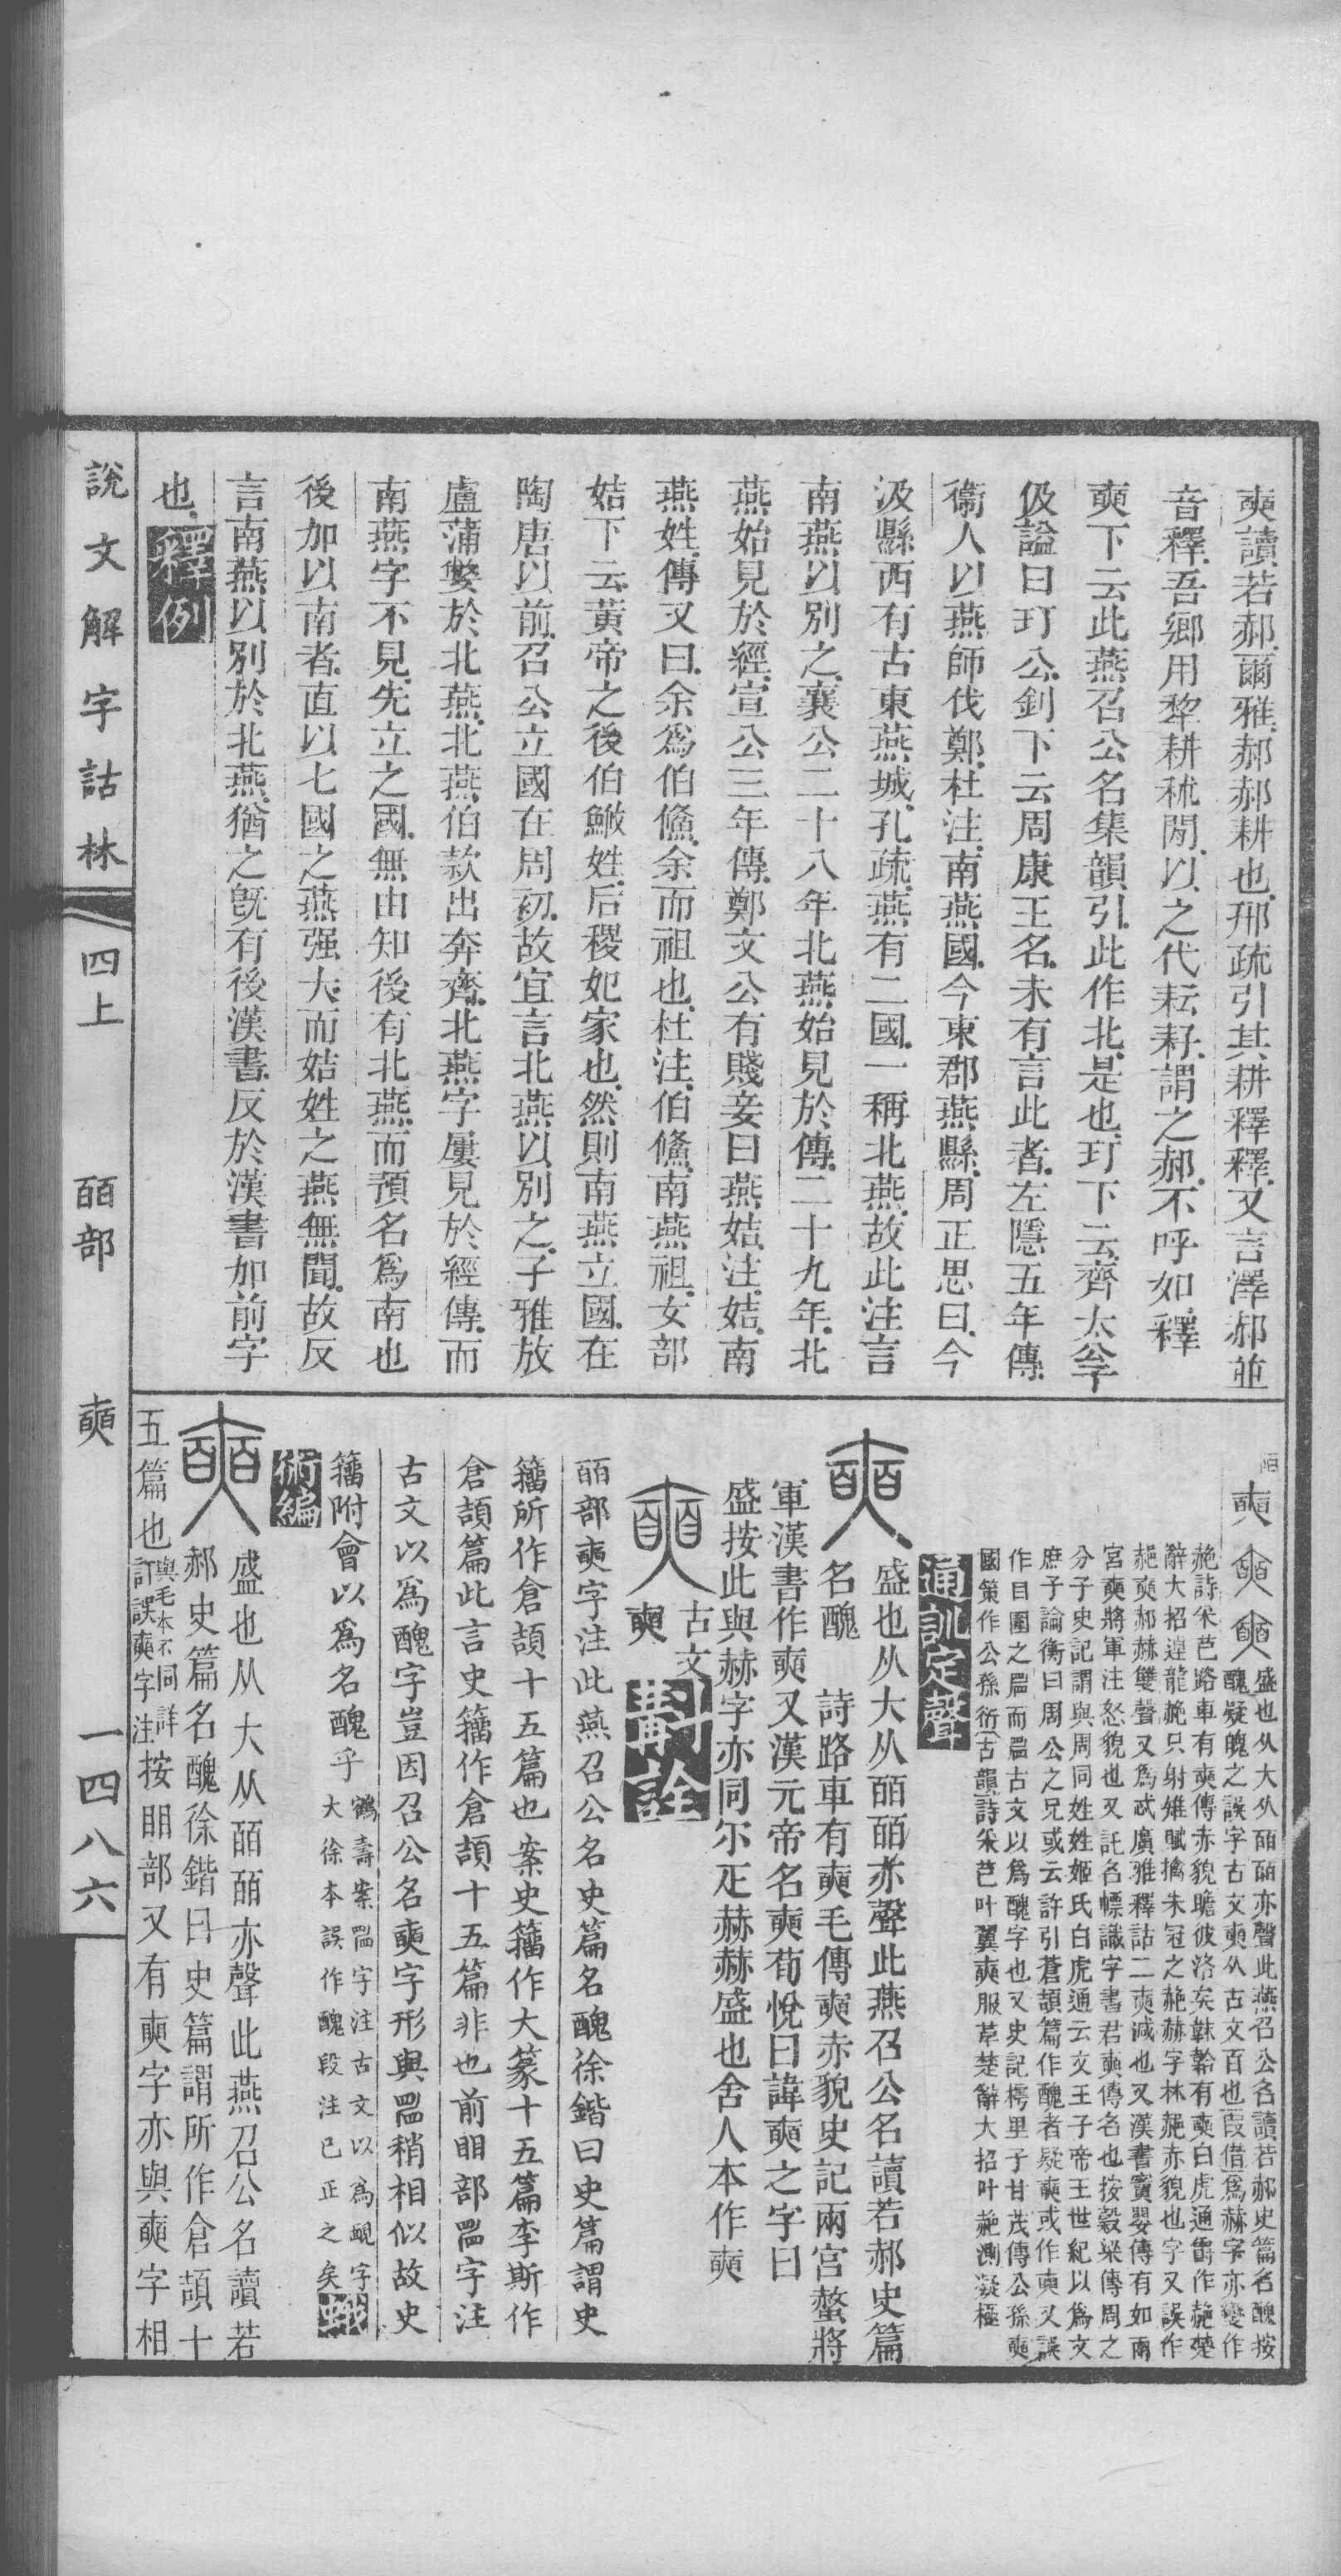 奭讀若郝爾雅郝郝耕也邢疏引其耕釋釋又言澤郝並
音釋吾鄉用犂耕秫閒以之代耘耔謂之郝不呼如釋
奭下云此燕召公名集韻引此作北是也玎下云齊太公子
伋謚曰玎公釗下云周康王名未有言此者左隱五年傳
衞人以燕師伐鄭杜注南燕國今東郡燕縣周正思曰今
汲縣西有古東燕城孔疏燕有二國一稱北燕故此注言
南燕以別之襄公二十八年北燕始見於傳二十九年北
燕始見於經宣公三年傳鄭文公有賤妾曰燕姞注姞南
燕姓傳又曰余爲伯鯈余而祖也杜注伯鯈南燕祖女部
姞下云黃帝之後伯鯈姓后稷妃家也然則南燕立國在
陶唐以前召公立國在周初故宜言北燕以別之子雅放
盧蒲嫳於北燕北燕伯款出奔齊北燕字屢見於經傳而
南燕字不見先立之國無由知後有北燕而預名爲南也
後加以南者直以七國之燕强大而姞姓之燕無聞故反
言南燕以別於北燕猶之旣有後漢書反於漢書加前字
也釋例
奭 盛也从大从皕皕亦聲此燕召公名讀若郝史篇名醜按
醜疑䰟之誤字古文奭从古文百也叚借爲赫字亦變作
赩詩采芑路車有奭傳赤貌瞻彼洛矣韎韐有奭白虎通爵作赩楚
辭大招逴龍赩只射雉賦摛朱冠之赩赫字林赩赤貌也字又誤作
赩奭郝赫雙聲又爲忒廣雅釋詁二奭減也又漢書竇嬰傳有如兩
宮奭將軍注怒貌也又託名幖識字書君奭傳名也按穀梁傳周之
分子史記謂與周同姓姓姬氏白虎通云文王子帝王世紀以爲文
庶子論衡曰周公之兄或云許引蒼頡篇作醜者疑奭或作奭又誤
作目圍之𥇛而𥇛古文以爲醜字也又史記樗里子甘茂傳公孫奭
國策作公孫衍古韻詩采芑叶翼奭服革楚辭大招叶赩測凝極
通訓定聲
奭 盛也从大从皕皕亦聲此燕召公名讀若郝史篇
名醜 詩路車有奭毛傳奭赤貌史記兩宮螫將
軍漢書作奭又漢元帝名奭荀悅曰諱奭之字曰
盛按此與赫字亦同尔疋赫赫盛也舍人本作奭
古文奭 斠詮
皕部奭字注此燕召公名史篇名醜徐鍇曰史篇謂史
籒所作倉頡十五篇也案史籒作大篆十五篇李斯作
倉頡篇此言史籒作倉頡十五篇非也前䀠部𥇛字注
古文以爲醜字豈因召公名奭字形與𥇛稍相似故史
籒附會以爲名醜乎 鶴壽案𥇛字注古文以爲靦字
大徐本誤作醜段注已正之矣 蛾
術編
奭 盛也从大从皕皕亦聲此燕召公名讀若
郝史篇名醜徐鍇曰史篇謂所作倉頡十
五篇也 與毛本不同詳
訂誤奭字注 按䀠部又有奭字亦與奭字相
說文解字詁林 四上 皕部 奭 一四八六